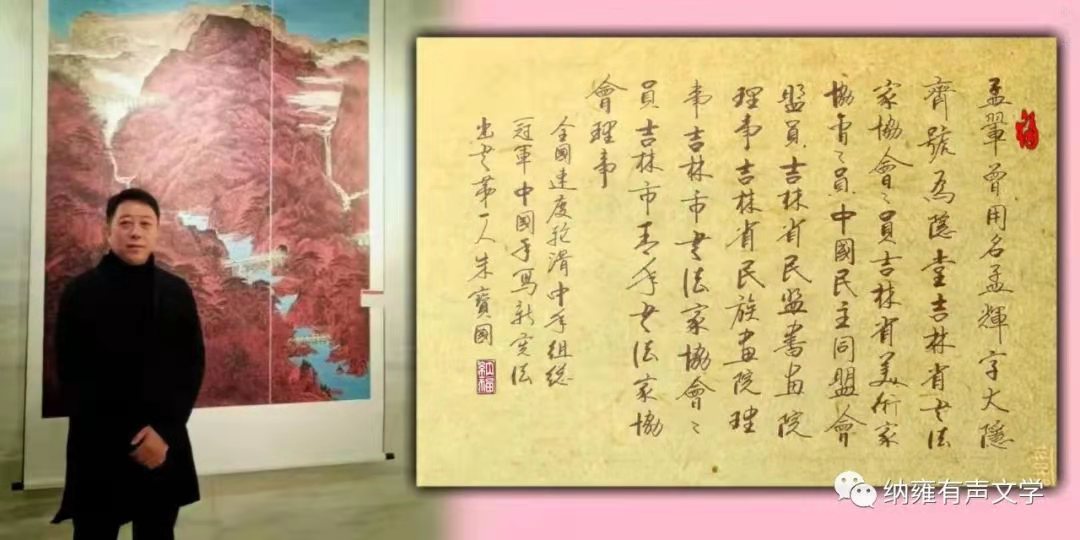 孟翬曾用名孟輝字大隱
齊號為隱堂吉林省书法
家協會々員吉林省美術家
協會々員中國民主同盟會
盟員吉林省民盟書画院
理事吉林省民族画院理
事吉林市书法家協會々
員吉林市青年书法家協
會理事
全國速度轮滑中年組總
冠軍中國手写新宪法
出书第一人朱寶國
福
纳雍有声文学